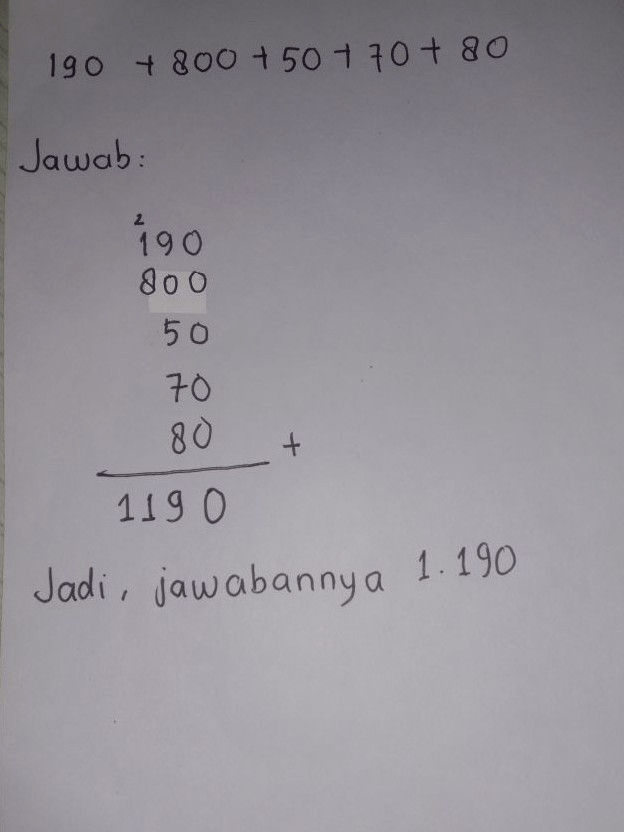 190 + 800 + 50 + 70 + 80
Jawab:
2
190
800
50
70
80 +
1190
Jadi, jawabannya 1.190